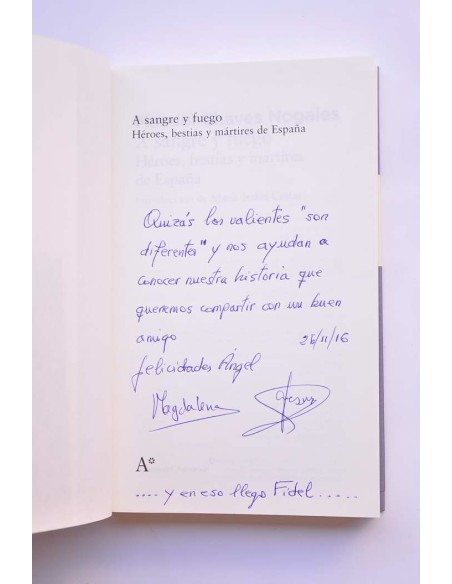 A sangre y fuego
Héroes, bestias y mártires de España
Quizás los valientes "son
diferentes" y nos ayudan a
conocer nuestra historia que
queremos compartir con un buen
amigo 25/11/16
felicidades Ángel
Magdalena Jesus
A*
.... y en eso llego Fidel.....